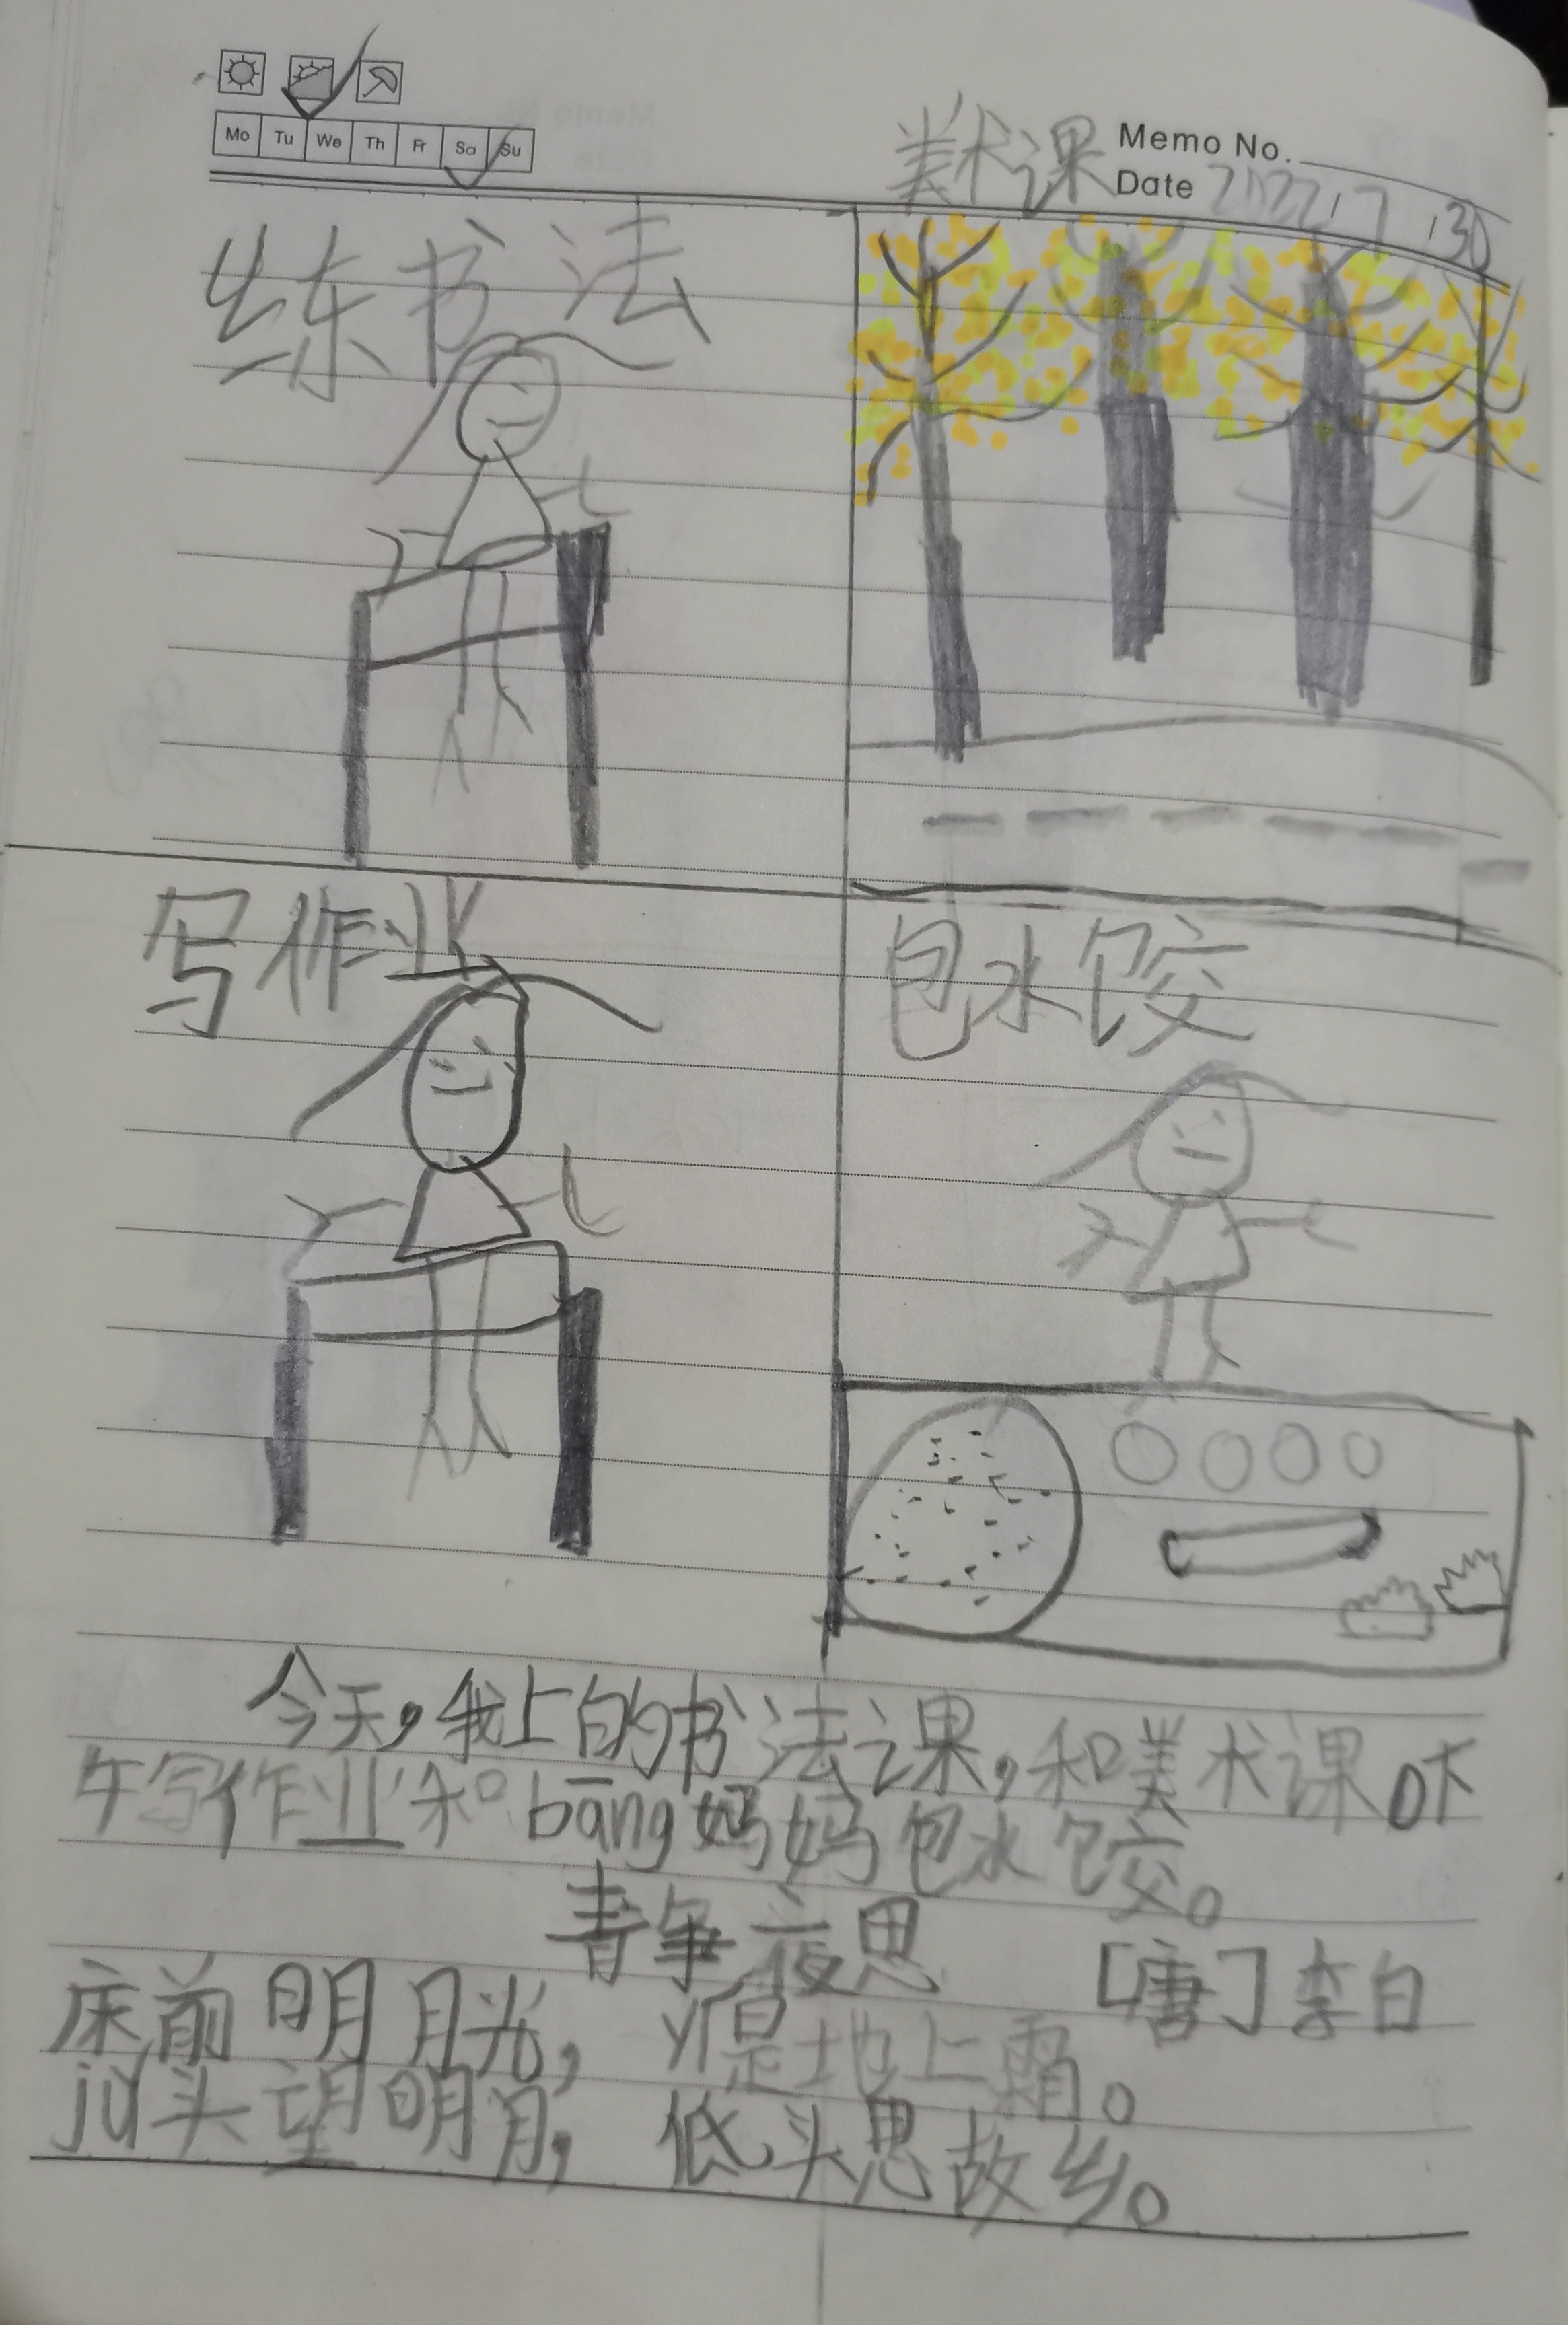 Mo Tu We Th Fr Sa Su
美术课 Memo No.
Date 2022.7.30
练书法
写作业
包水饺
今天，我上的书法课，和美术课下
午写作业和bāng妈妈包水饺。
静夜思 [唐]李白
床前明月光，yí是地上霜。
jǔ头望明月，低头思故乡。